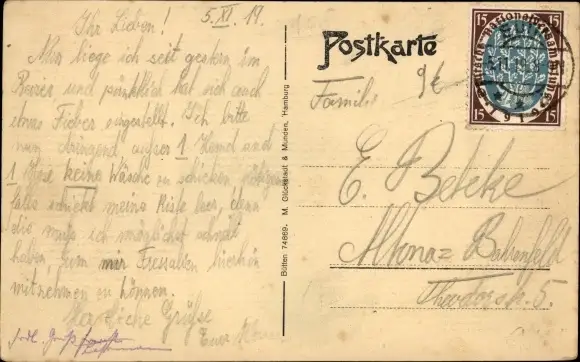 5. XI. 19.
Ihr Lieben!
Nun liege ich seit gestern im
Revier und pünktlich hat sich auch
etwas Fieber eingestellt. Ich bitte
nun dringend, ausser 1 Hemd und
1 Hose keine Wäsche zu schicken
falls schickt meine Kiste leer, denn
die muß ich möglichst schnell
haben, um mir Fressalien hierhin
mitnehmen zu können.
Herzliche Grüße
Euer
frdl. Gruß
Postkarte
Familie
E. Betcke
Altona-Bahrenfeld
Theodorstr. 5.
Blötten 74869. M. Glückstadt & Münden, Hamburg
15 Deutsche Nationalversammlung 15
1919